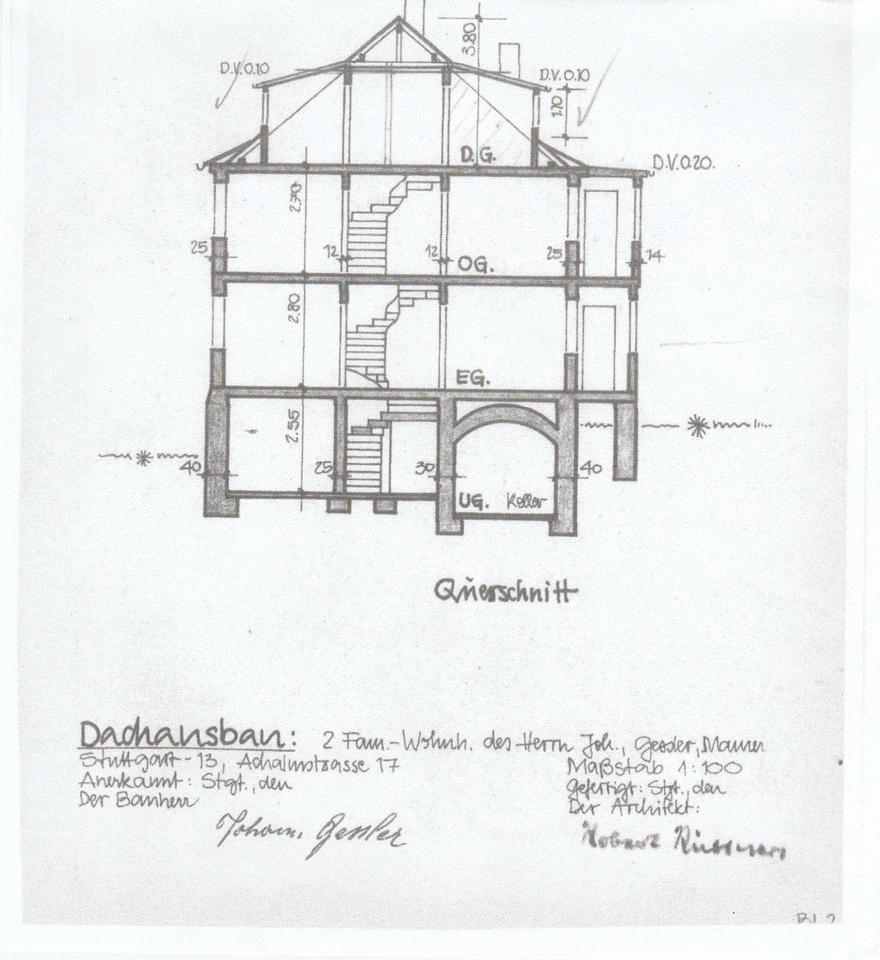 3.80
D.V.0.10
D.V.0.10
1.70
D.G.
D.V.0.20.
2.70
25
12
12
25
14
OG.
2.80
EG.
2.55
40
25
30
40
UG. Keller
Querschnitt
Dachausbau: 2 Fam.-Wohnh. des Herrn Joh., Gessler, Maurer
Stuttgart-13, Achalmstrasse 17
Maßstab 1:100
Anerkannt: Stgt., den
Gefertigt: Stgt., den
Der Bauherr
Der Architekt:
Johann Gessler
Bl. 2